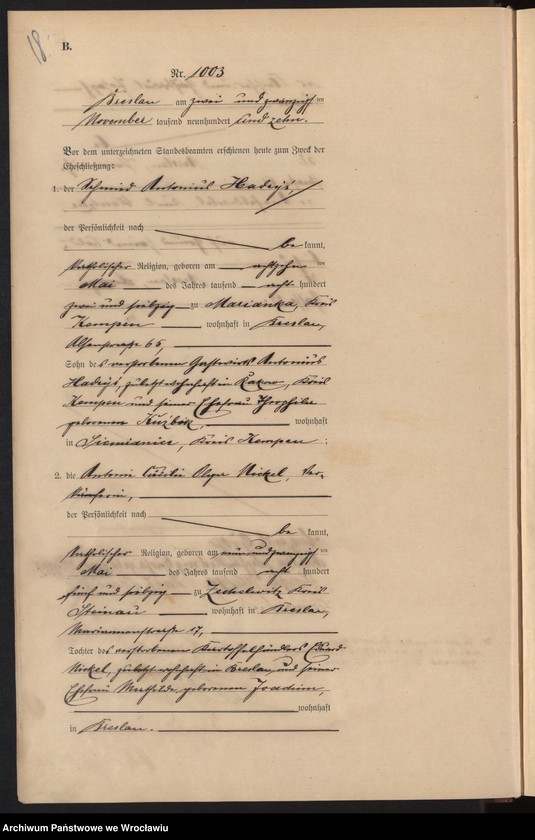 18
B.
Nr. 1003
Breslau am zwei und zwanzigsten
November tausend neunhundert und zehn.
Vor dem unterzeichneten Standesbeamten erschienen heute zum Zweck der
Eheschließung:
1. der Schmied Antonius
der Persönlichkeit nach
be kannt,
katholischer Religion, geboren am achtzehnten
Mai des Jahres tausend acht hundert
zwei und siebzig zu Marianka, Kreis
Kempen wohnhaft in Breslau,
Alsenstraße 65,
Sohn des verstorbenen Gastwirts Antonius
zuletzt wohnhaft in Kreis
Kempen und seiner Ehefrau Theophila
geborenen wohnhaft
in Siemianice, Kreis Kempen;
2. die Antonie Cäcilie Olga Nickel, Ver-
käuferin,
der Persönlichkeit nach
be kannt,
katholischer Religion, geboren am neun und zwanzigsten
Mai des Jahres tausend acht hundert
fünf und siebzig zu Kreis
Steinau wohnhaft in Breslau,
Mariannenstraße 17,
Tochter des verstorbenen Kartoffelhändlers Eduard
Nickel, zuletzt wohnhaft in Breslau, und seiner
Ehefrau Mathilde, geborenen Joachim,
wohnhaft
in Breslau.
Archiwum Państwowe we Wrocławiu